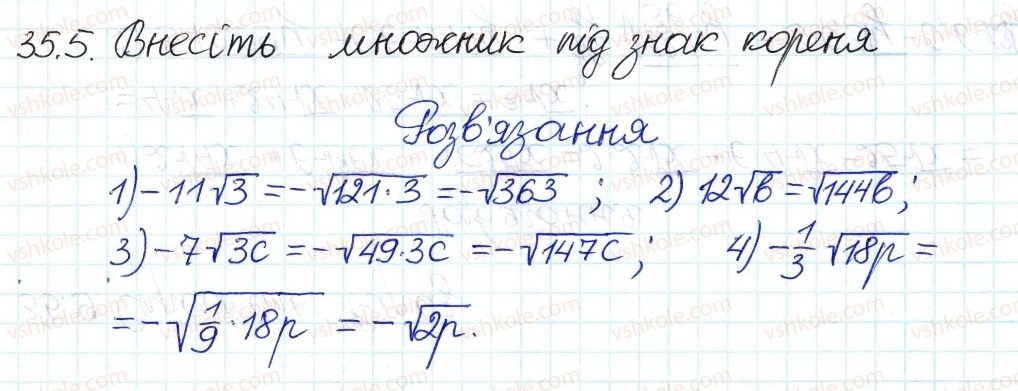 35.5. Внесіть множник під знак кореня
Розв'язання
1) -11√3 = -√121·3 = -√363 ; 2) 12√b = √144b;
3) -7√3c = -√49·3c = -√147c; 4) -1/3 √18p =
= -√1/9·18p = -√2p.